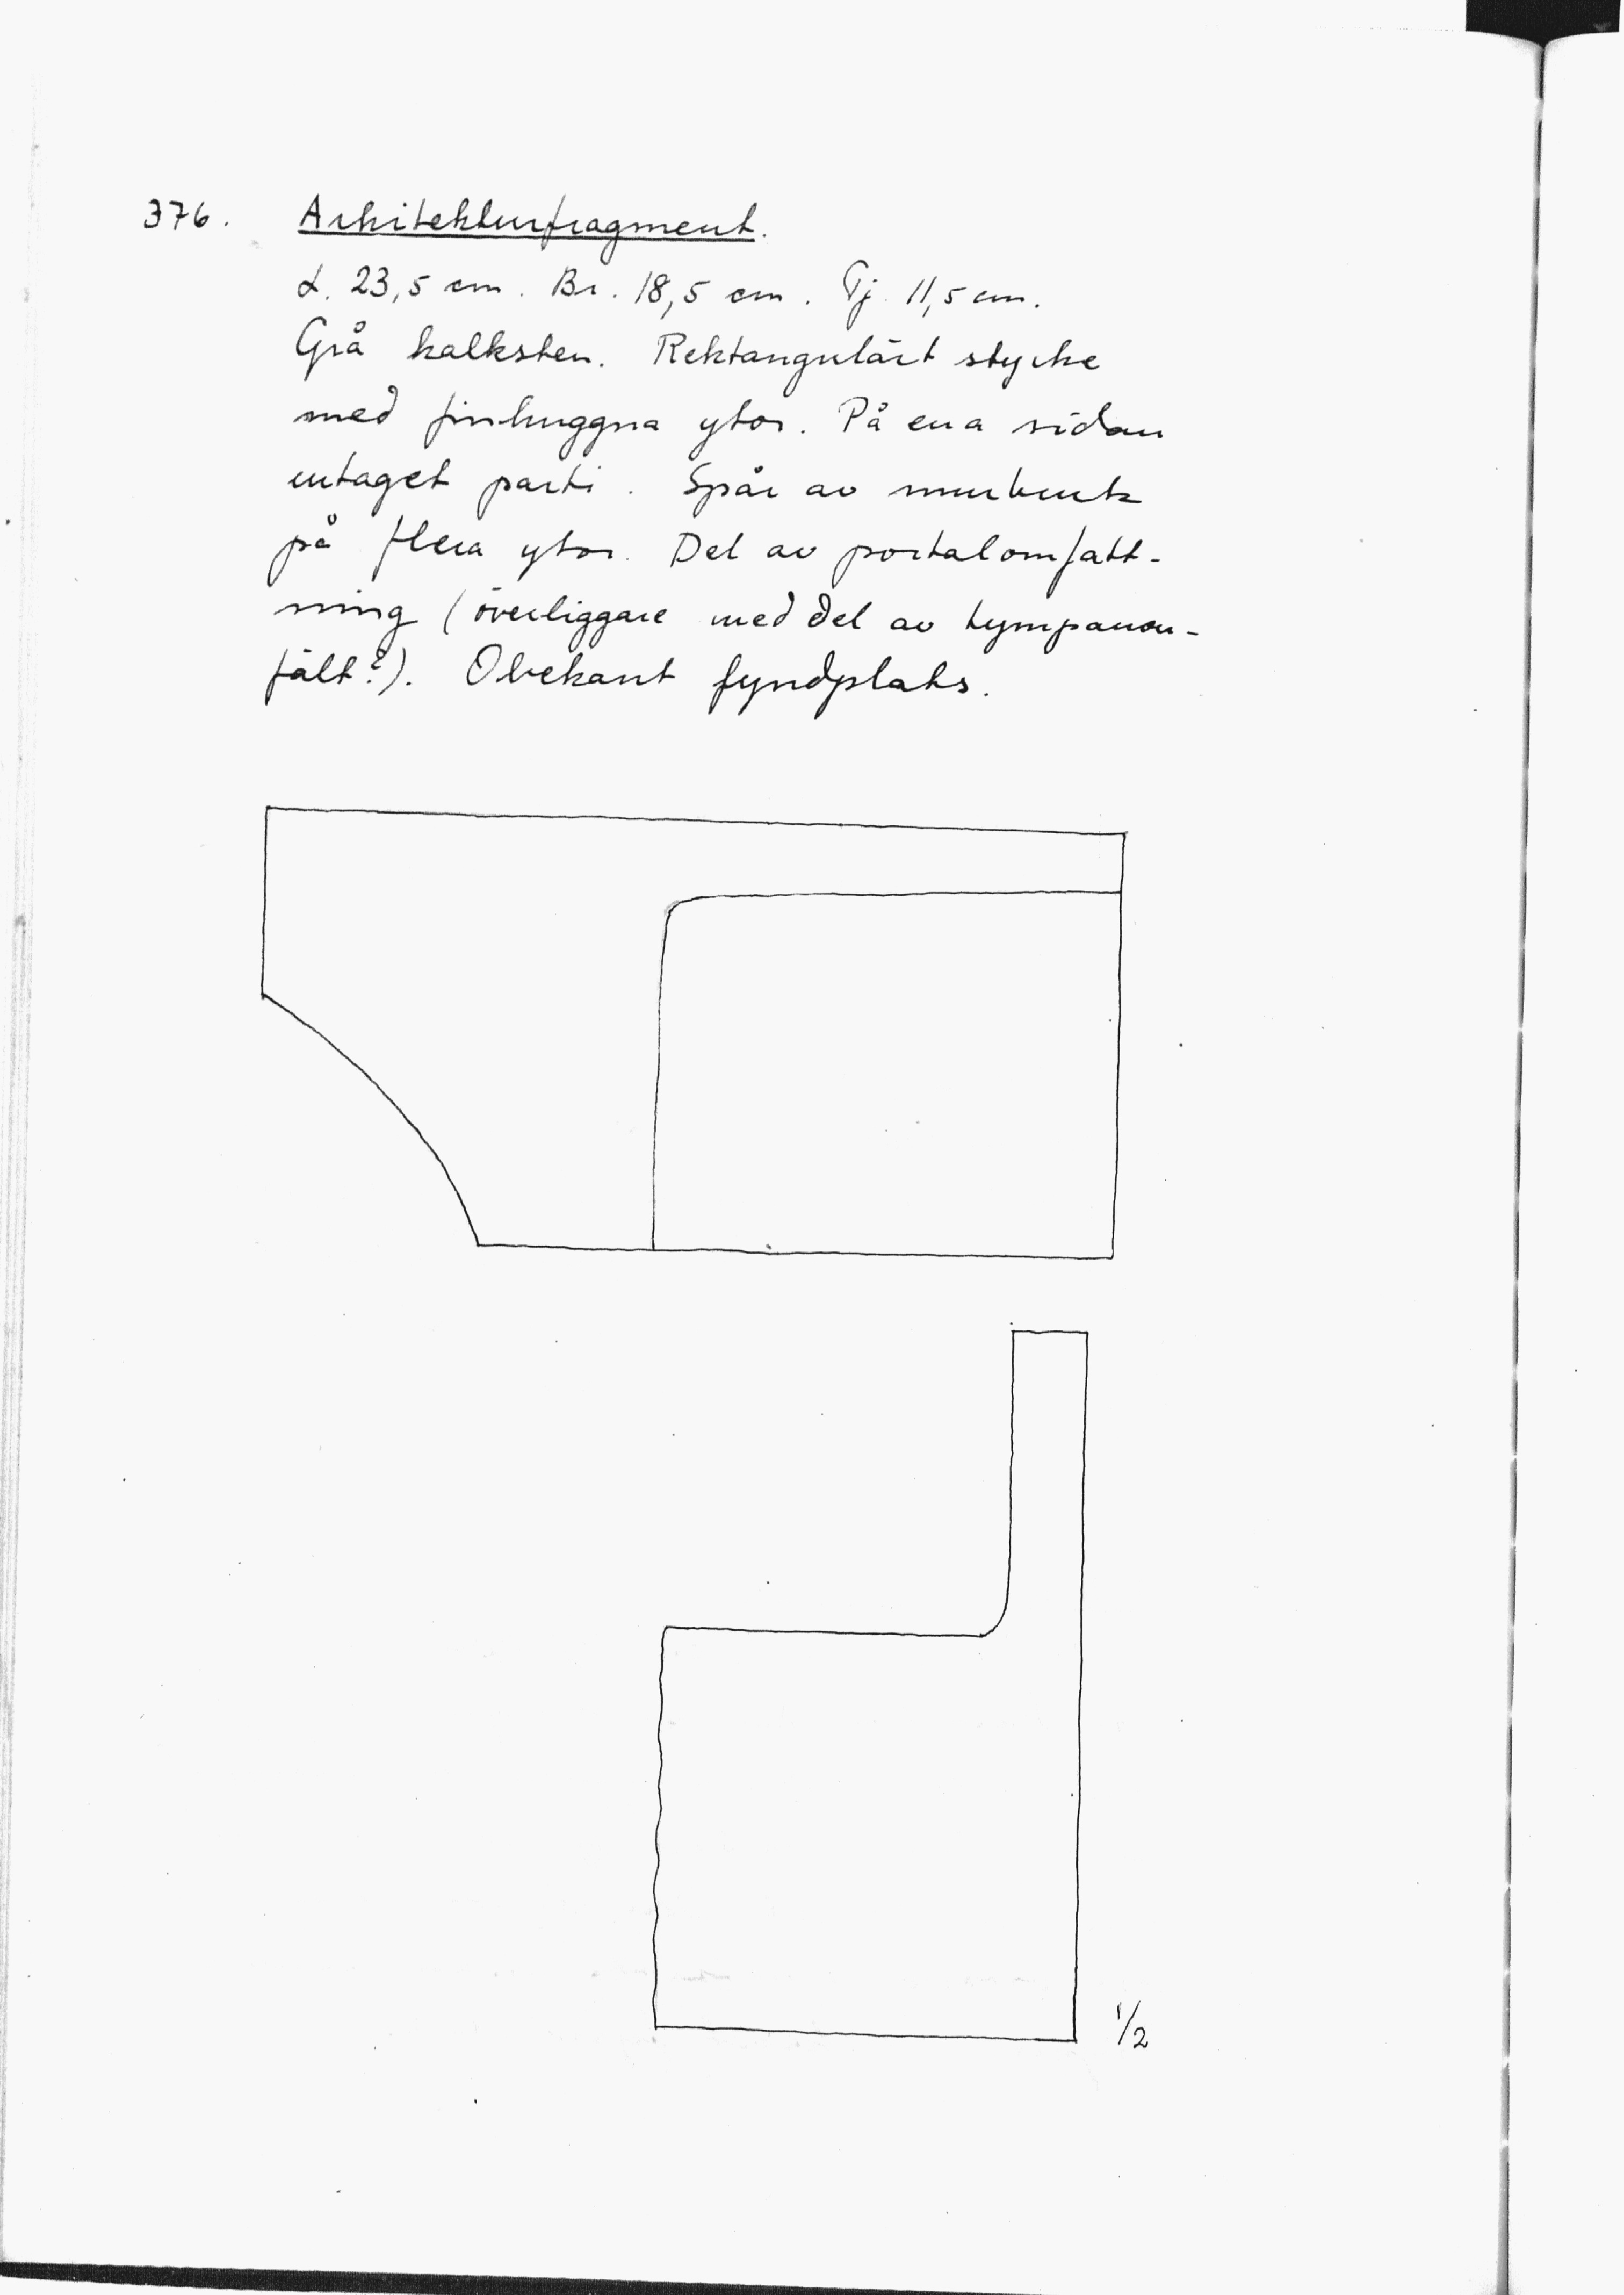 376. Arkitekturfragment.
L. 23,5 cm. Br. 18,5 cm. Tj. 11,5 cm.
Grå kalksten. Rektangulärt stycke
med finhuggna ytor. På ena sidan
urtaget parti. Spår av murbruk
på flera ytor. Del av portalomfatt-
ning (överliggare med del av tympanon-
fält?). Obekant fyndplats.
1/2